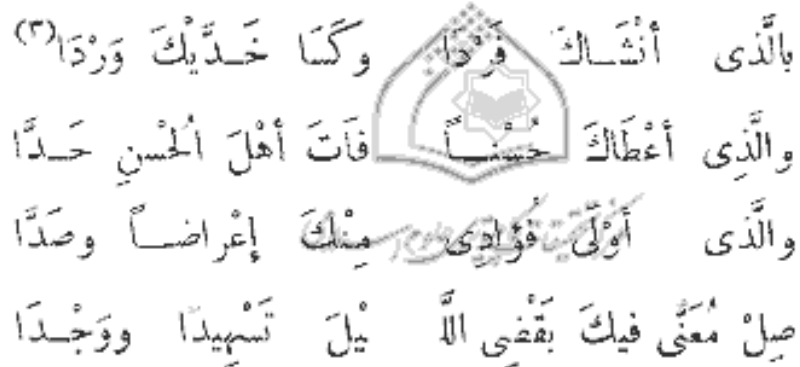 بالَّذى أنْشَـاكَ فَرْدَا وكَسَا خَـدَّيْكَ وَرْدَا(٣)
والَّذِى أعْطَاكَ حُسْنـاً فَاتَ أهْلَ الُحْسنِ حَـدَّا
والَّذى أوْلَى فُؤادِى مِنْكَ إعْراضـاً وصَدَّا
صِلْ مُعَنًّى فيكَ يَقْضى اللَّ يْلَ تَسْهِيدًا ووَجْـدَا